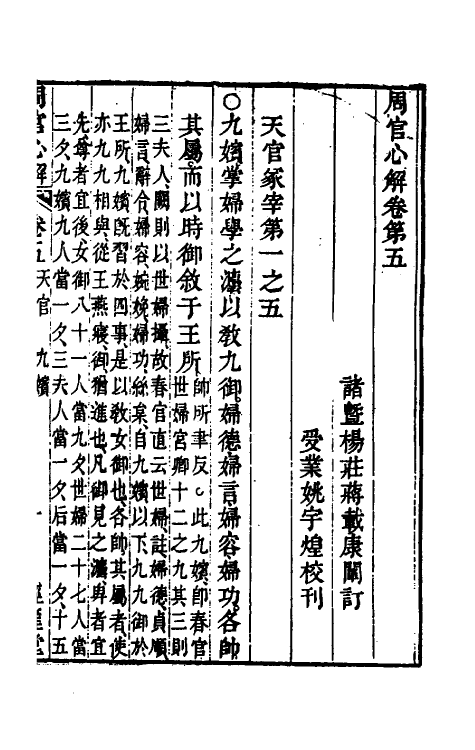 周官心解卷第五
諸曁楊莊蔣載康閬訂
受業姚宇煌校刊
天官冢宰第一之五
○九嬪掌婦學之灋以敎九御婦德婦言婦容婦功各帥
其屬而以時御敘于王所
帥所聿反○此九嬪卽春官
世婦宮卿十二之九其三則
三夫人闕則以世婦攝故春官直云世婦註婦德貞順
婦言辭令婦容婉娩婦功絲枲自九嬪以下九九御於
王所九嬪旣習於四事是以敎女御也各帥其屬者使
亦九九相與從王燕寢御猶進也凡御見之灋卑者宜
先尊者宜後女御八十一人當九夕世婦二十七人當
三夕九嬪九人當一夕三夫人當一夕后當一夕十五
周官心解 卷五 天官 九嬪 一 經堂